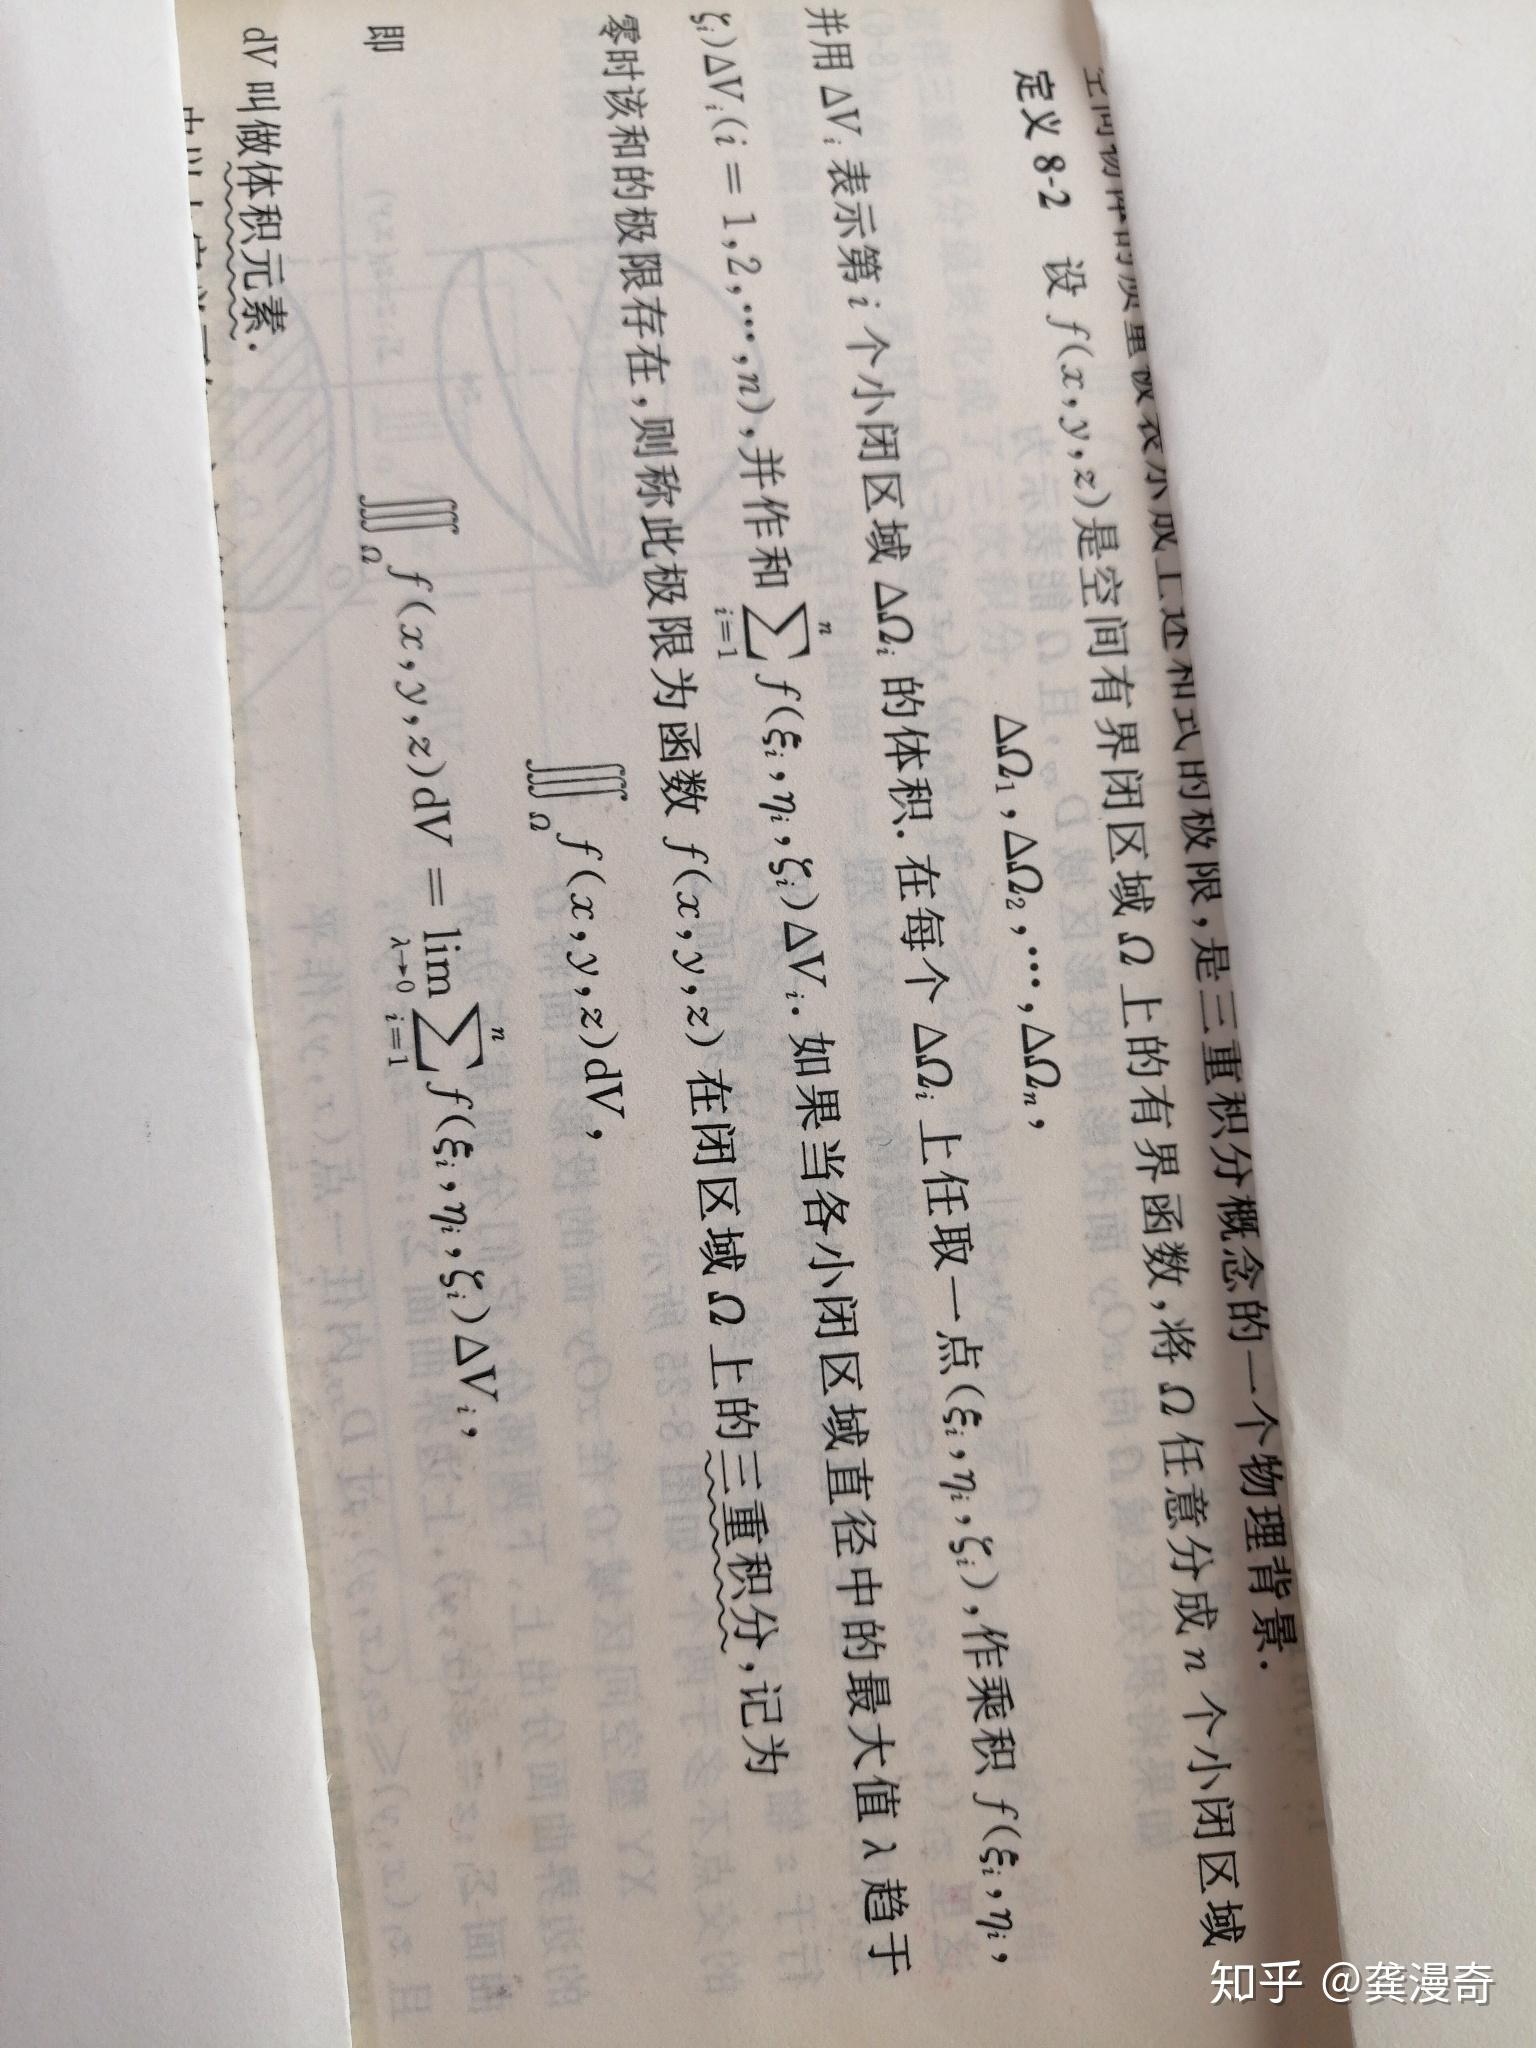 空间物体的质量被表示成上述和式的极限,是三重积分概念的一个物理背景.
定义 8-2 设 f(x,y,z)是空间有界闭区域 Ω 上的有界函数,将 Ω 任意分成 n 个小闭区域
ΔΩ₁,ΔΩ₂,…,ΔΩₙ,
并用 ΔVᵢ 表示第 i 个小闭区域 ΔΩᵢ 的体积.在每个 ΔΩᵢ 上任取一点(ξᵢ,ηᵢ,ζᵢ),作乘积 f(ξᵢ,ηᵢ,
ζᵢ)ΔVᵢ(i=1,2,…,n),并作和 ∑_{i=1}^{n} f(ξᵢ,ηᵢ,ζᵢ)ΔVᵢ.如果当各小闭区域直径中的最大值 λ 趋于
零时该和的极限存在,则称此极限为函数 f(x,y,z)在闭区域 Ω 上的三重积分,记为
∭_Ω f(x,y,z)dV,
即
∭_Ω f(x,y,z)dV = lim_{λ→0} ∑_{i=1}^{n} f(ξᵢ,ηᵢ,ζᵢ)ΔVᵢ,
dV 叫做体积元素.
知乎 @龚漫奇